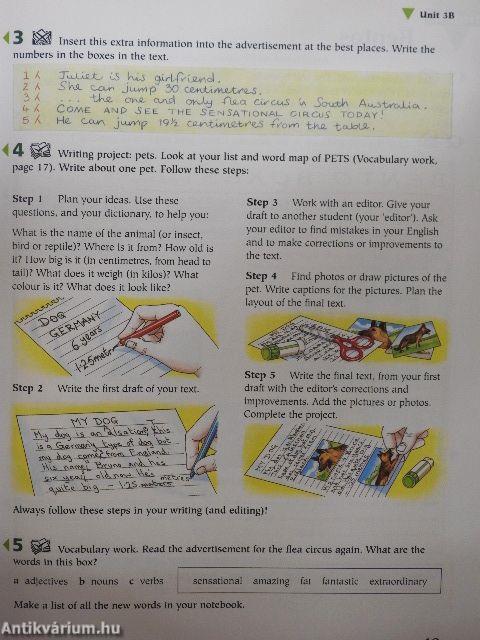 Unit 3B
3 Insert this extra information into the advertisement at the best places. Write the
numbers in the boxes in the text.
1 Juliet is his girlfriend.
2 She can jump 30 centimetres.
3 ... the one and only flea circus in South Australia.
4 COME AND SEE THE SENSATIONAL CIRCUS TODAY!
5 He can jump 19½ centimetres from the table.
4 Writing project: pets. Look at your list and word map of PETS (Vocabulary work,
page 17). Write about one pet. Follow these steps:
Step 1 Plan your ideas. Use these
questions, and your dictionary, to help you:
What is the name of the animal (or insect,
bird or reptile)? Where is it from? How old is
it? How big is it (in centimetres, from head to
tail)? What does it weigh (in kilos)? What
colour is it? What does it look like?
DOG
GERMANY
6 years
1.25metr
Step 2 Write the first draft of your text.
MY DOG
My dog is an alsation, this
is a Germany type of dog but
my dog come from England.
His name Bruno and has
six year old now. He metres
quite big – 1.25
Step 3 Work with an editor. Give your
draft to another student (your 'editor'). Ask
your editor to find mistakes in your English
and to make corrections or improvements to
the text.
Step 4 Find photos or draw pictures of the
pet. Write captions for the pictures. Plan the
layout of the final text.
Step 5 Write the final text, from your first
draft with the editor's corrections and
improvements. Add the pictures or photos.
Complete the project.
Always follow these steps in your writing (and editing)!
5 Vocabulary work. Read the advertisement for the flea circus again. What are the
words in this box?
a adjectives b nouns c verbs
sensational amazing fat fantastic extraordinary
Make a list of all the new words in your notebook.
Antikvárium.hu